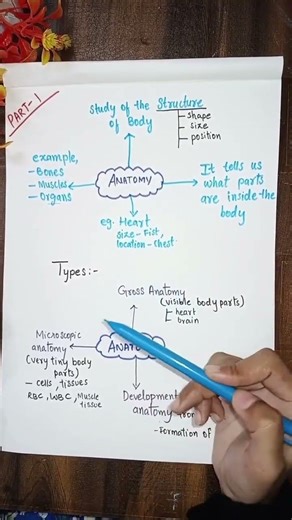 PART-1
Study of the Structure
of Body
- shape
- size
- position
example,
- Bones
- Muscles
- Organs
ANATOMY
It tells us
what parts
are inside the
body
eg. Heart
size - Fist,
location - Chest.
Types:-
Gross Anatomy
(visible body parts)
heart
brain
Microscopic
anatomy
(Very tiny body
parts)
- cells, tissues
RBC, WBC, Muscle
tissue
Development
anatomy
- Formation of